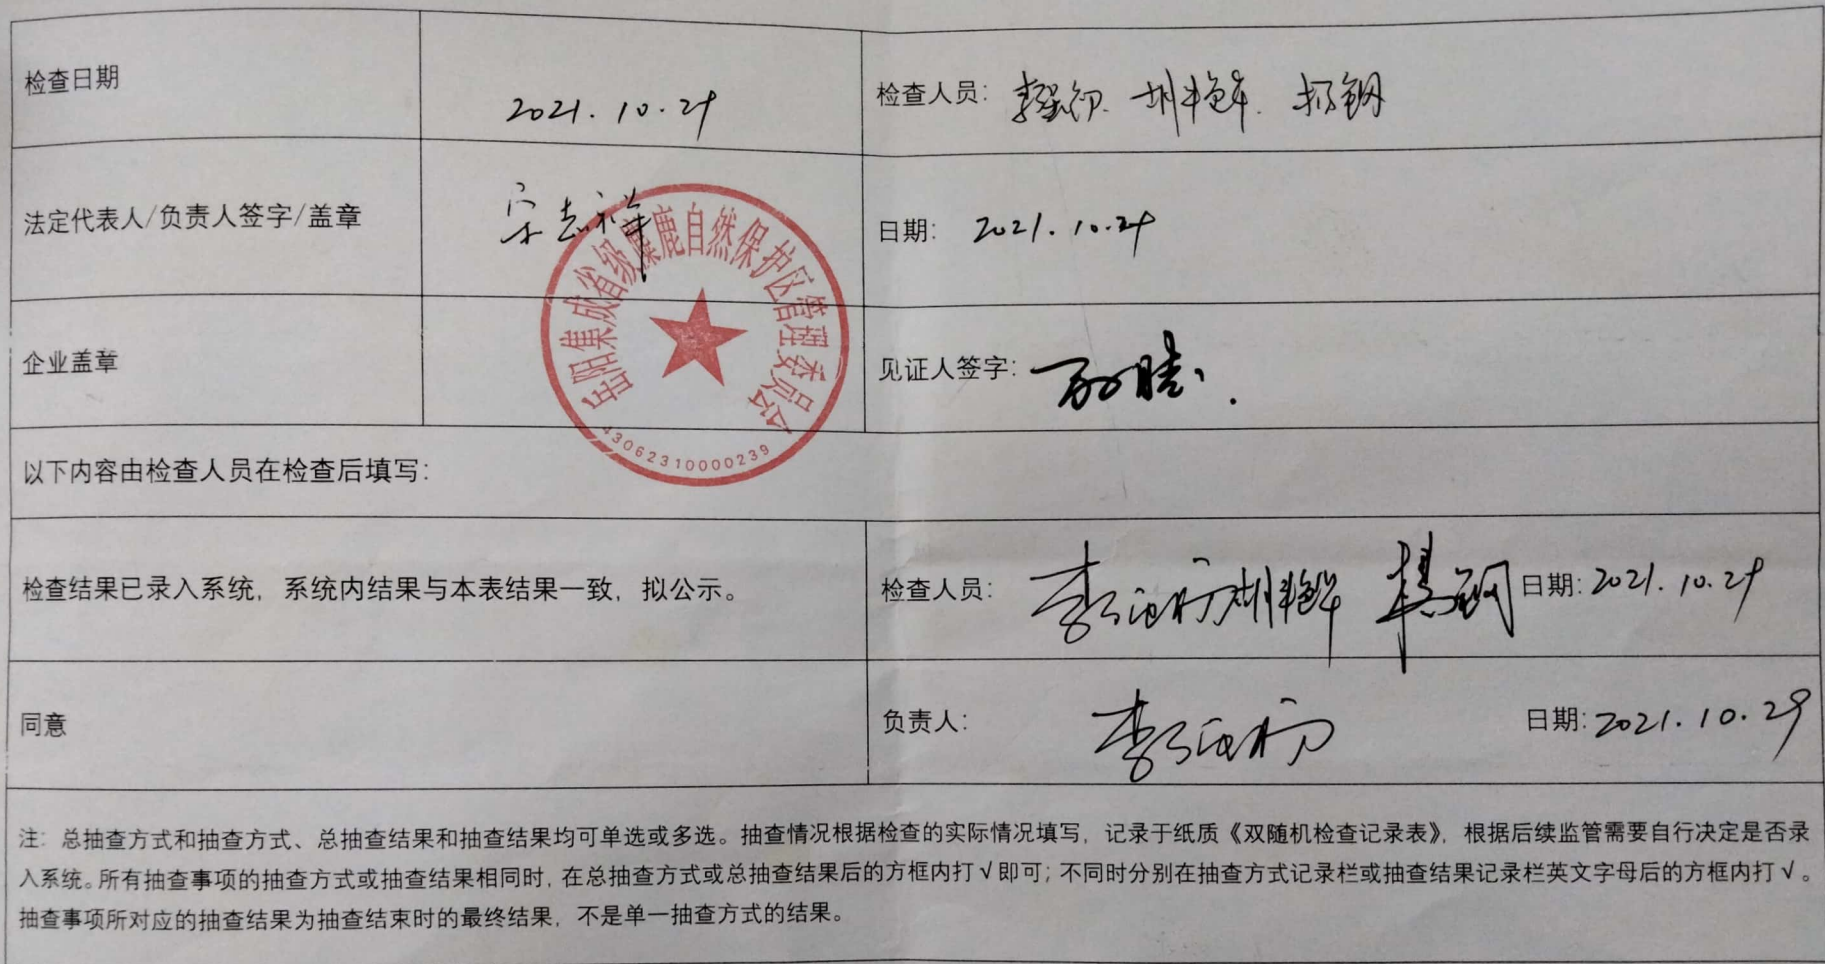 检查日期
2021.10.29
检查人员：
杨钢
法定代表人/负责人签字/盖章
宋志祥
日期：2021.10.29
岳阳集成省级麋鹿自然保护区管理委员会
43062310000239
企业盖章
见证人签字：
以下内容由检查人员在检查后填写：
检查结果已录入系统，系统内结果与本表结果一致，拟公示。
检查人员：
杨钢
日期：2021.10.29
同意
负责人：
日期：2021.10.29
注：总抽查方式和抽查方式、总抽查结果和抽查结果均可单选或多选。抽查情况根据检查的实际情况填写，记录于纸质《双随机检查记录表》，根据后续监管需要自行决定是否录
入系统。所有抽查事项的抽查方式或抽查结果相同时，在总抽查方式或总抽查结果后的方框内打√即可；不同时分别在抽查方式记录栏或抽查结果记录栏英文字母后的方框内打√。
抽查事项所对应的抽查结果为抽查结束时的最终结果，不是单一抽查方式的结果。